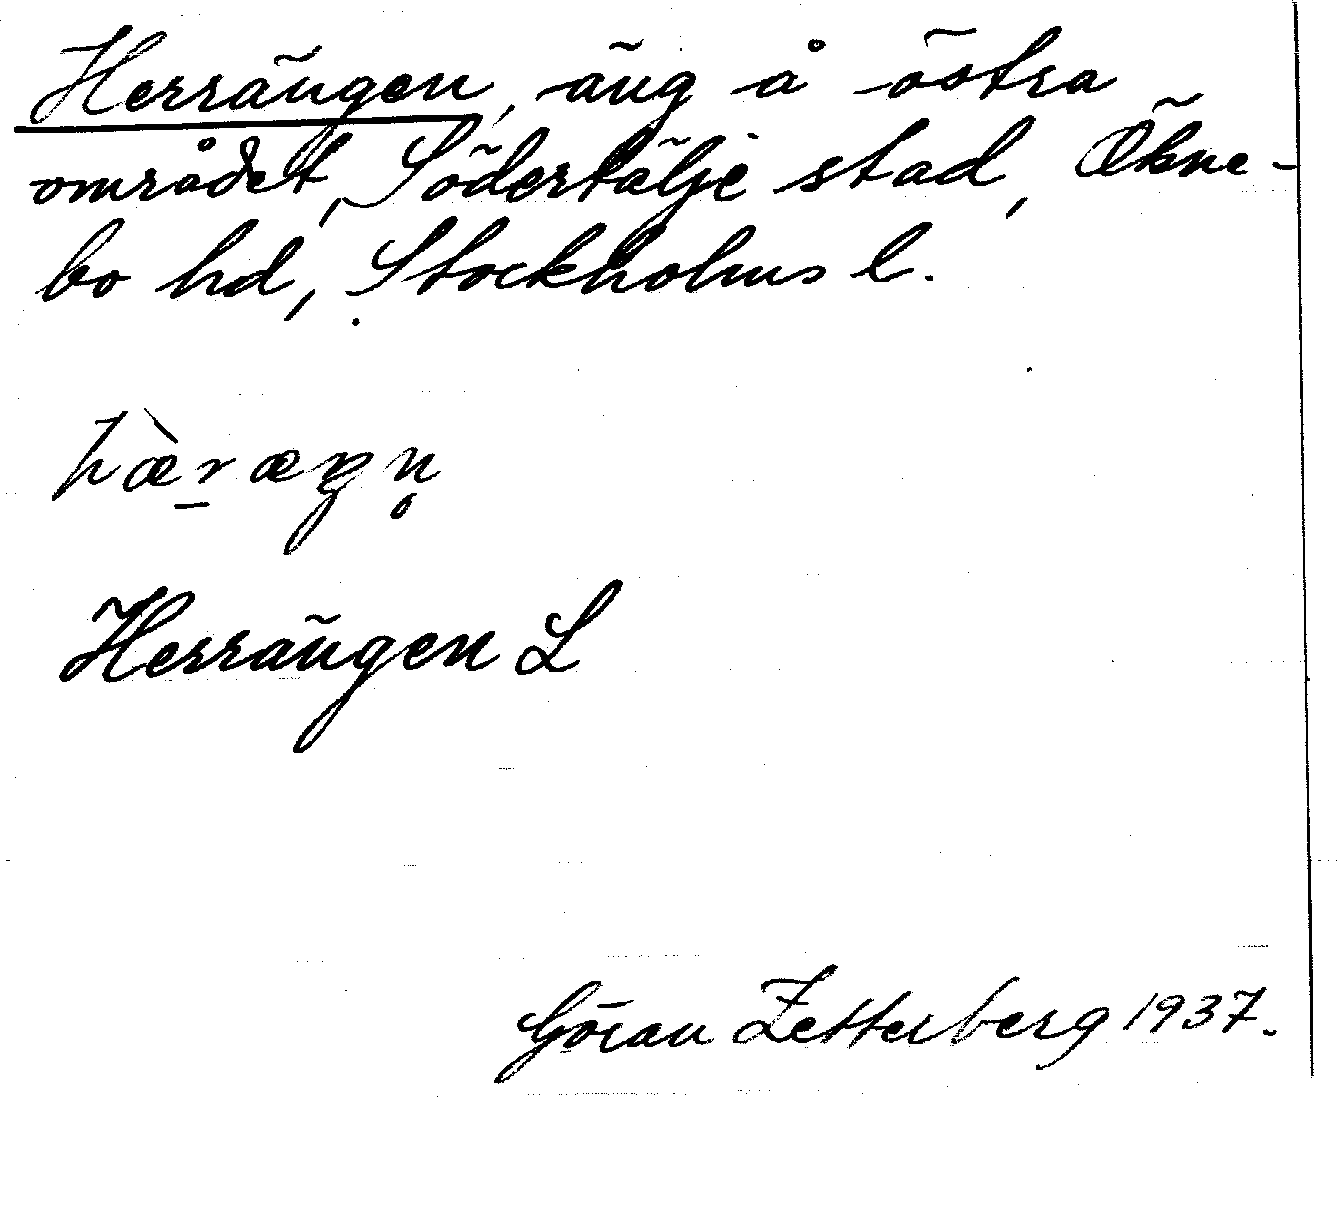 Herrängen, äng å östra
området, Södertälje stad, Økne-
bo hd, Stockholms l.
hæ̀r̠æŋn̥
Herrängen L
Göran Zetterberg 1937.